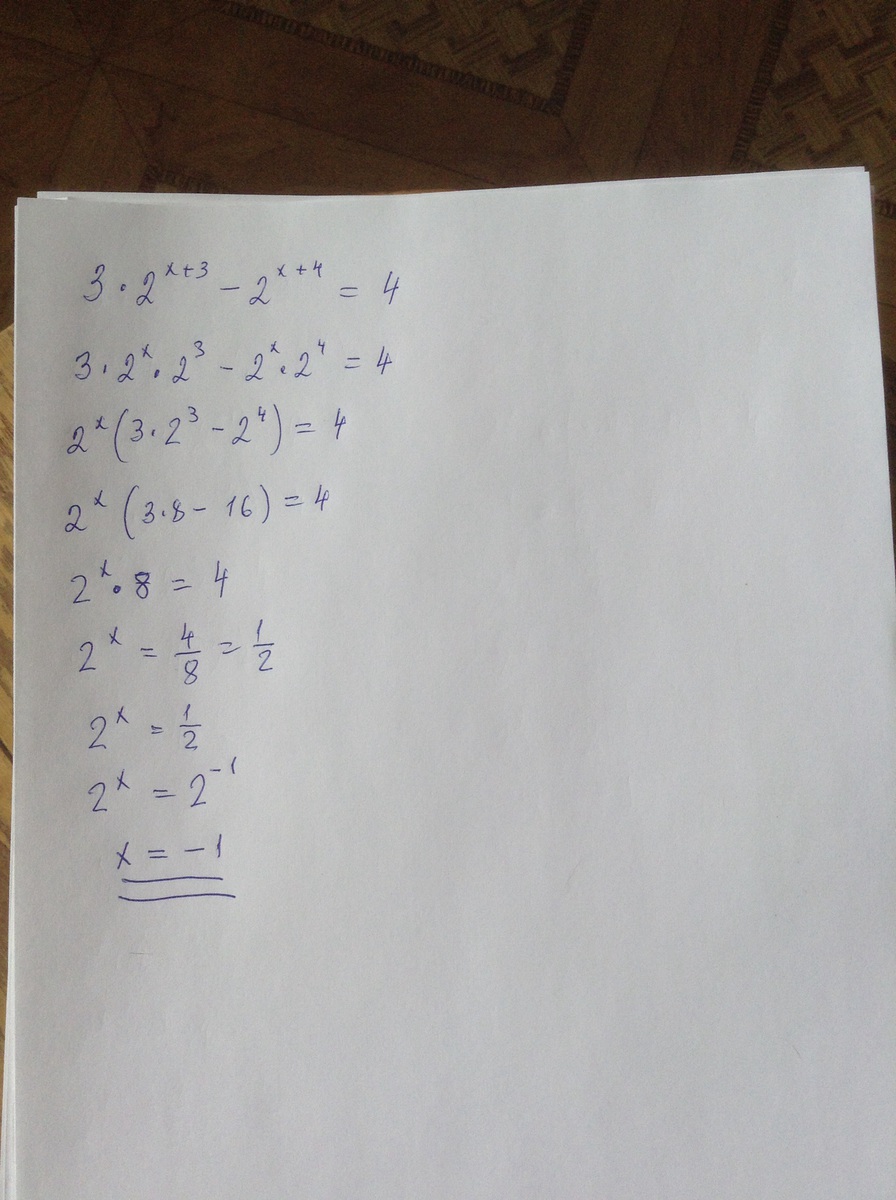 3 · 2^(x+3) − 2^(x+4) = 4
3 · 2^x · 2^3 − 2^x · 2^4 = 4
2^x (3 · 2^3 − 2^4) = 4
2^x (3 · 8 − 16) = 4
2^x · 8 = 4
2^x = 4/8 = 1/2
2^x = 1/2
2^x = 2^(−1)
x = −1